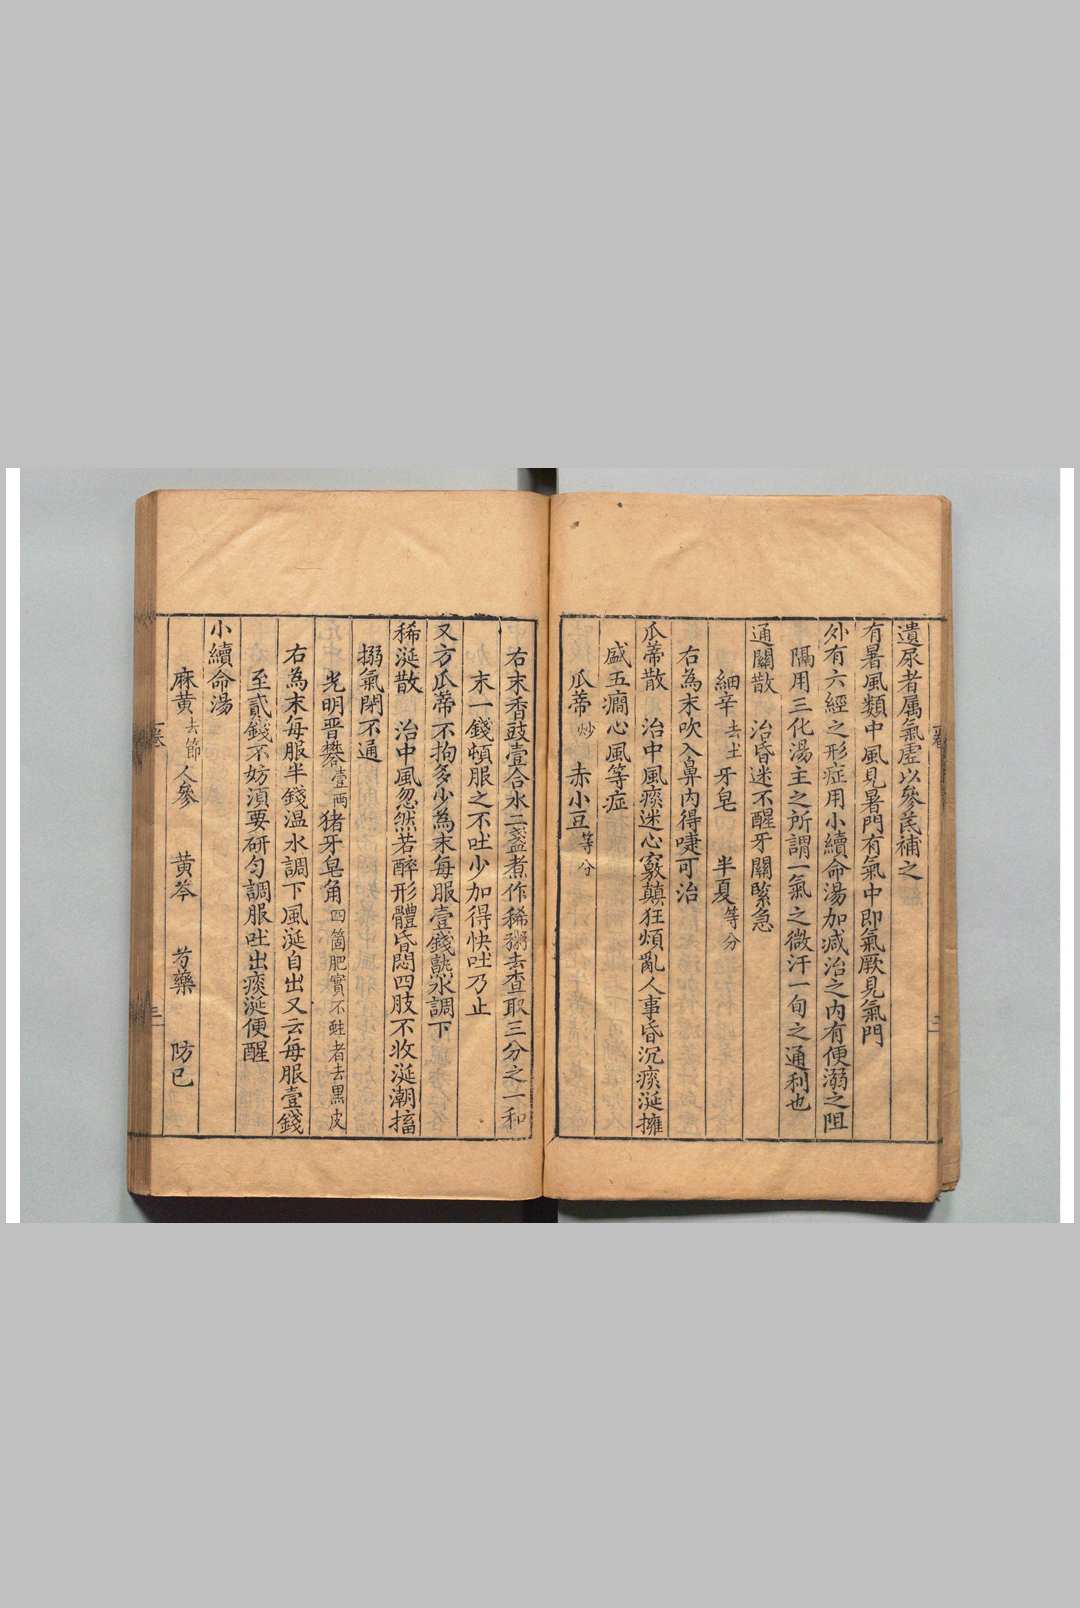 遺尿者属氣虛以參芪補之
有暑風類中風見暑門有氣中即氣厥見氣門
外有六經之形症用小續命湯加減治之内有便溺之阻
隔用三化湯主之所謂一氣之微汗一旬之通利也
通關散 治昏迷不醒牙關緊急
細辛去土 牙皂 半夏等分
右為末吹入鼻内得嚏可治
瓜蒂散 治中風痰迷心竅顛狂煩亂人事昏沉痰涎擁
盛五癇心風等症
瓜蒂炒 赤小豆等分
右末香豉壹合水二盞煮作稀粥去查取三分之一和
末一錢頓服之不吐少加得快吐乃止
又方瓜蒂不拘多少為末每服壹錢虀水調下
稀涎散 治中風忽然若醉形體昏悶四肢不收涎潮搐
搦氣閉不通
光明晋礬壹兩 猪牙皂角四箇肥實不蛀者去黒皮
右為末每服半錢温水調下風涎自出又云每服壹錢
至貳錢不妨湏要研匀調服吐出痰涎便醒
小續命湯
麻黄去節 人參 黄芩 芍藥 防已
卷一
二
卷一
三